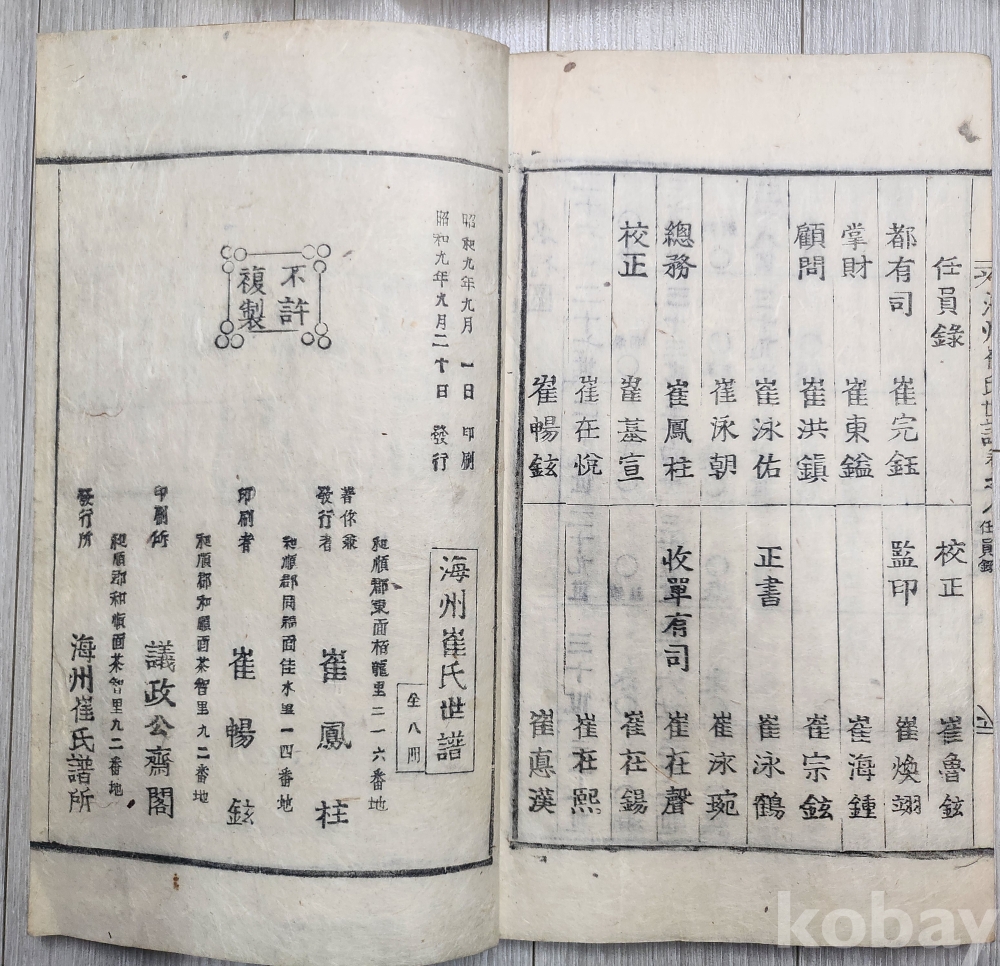 海州崔氏世譜 卷之八 任員錄
任員錄
都有司 崔完鈺
掌財 崔東鎰
顧問 崔洪鎭
崔泳佑
崔泳朝
總務 崔鳳柱
校正 崔基宣
崔在悅
崔暢鉉
校正 崔魯鉉
監印 崔煥翊
崔海鍾
崔宗鉉
正書 崔泳鶴
崔泳琬
收單有司 崔在聲
崔在錫
崔在熙
崔悳漢
昭和九年九月 一日 印刷
昭和九年九月二十日 發行
不許
複製
海州崔氏世譜
全八冊
和順郡東面栢龍里二一六番地
著作兼
發行者 崔鳳柱
和順郡同福面佳水里一四番地
印刷者 崔暢鉉
和順郡和順面茶智里九二番地
印刷所 議政公齋閣
和順郡和順面茶智里九二番地
發行所 海州崔氏譜所
kobay